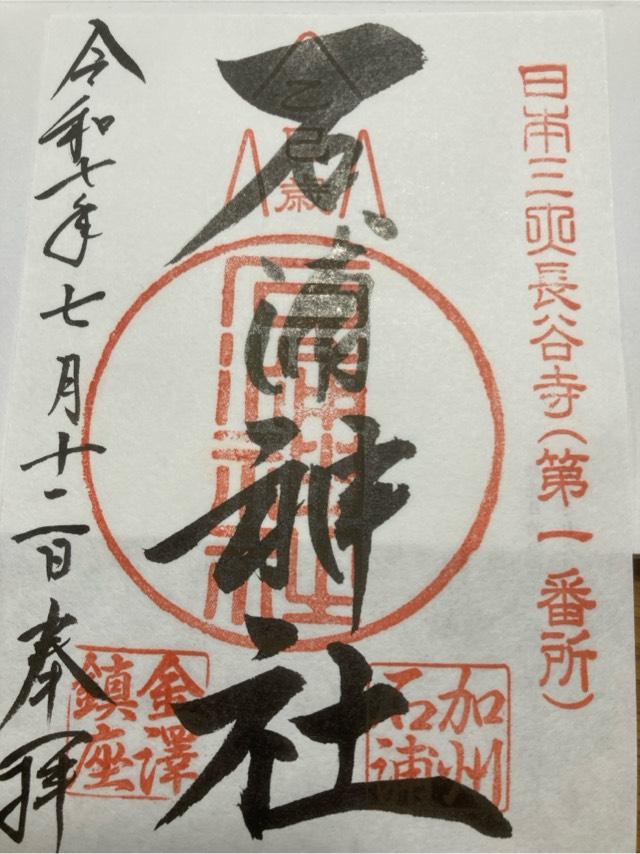 日本三所長谷寺(第一番所)
乙巳
歳
石浦神社
加州
石浦
金澤
鎮座
令和七年七月十二日奉拝